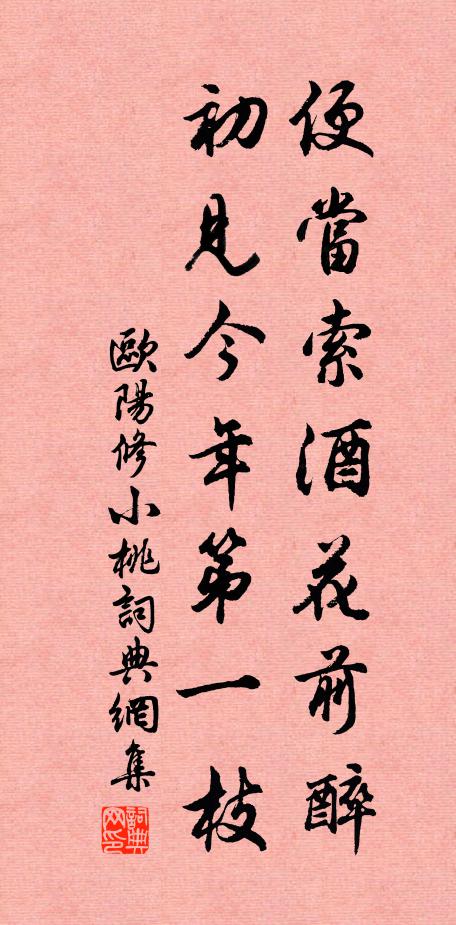 便當索酒花前醉
初見今年第一枝
歐陽修小桃詞典網集
詞典网印